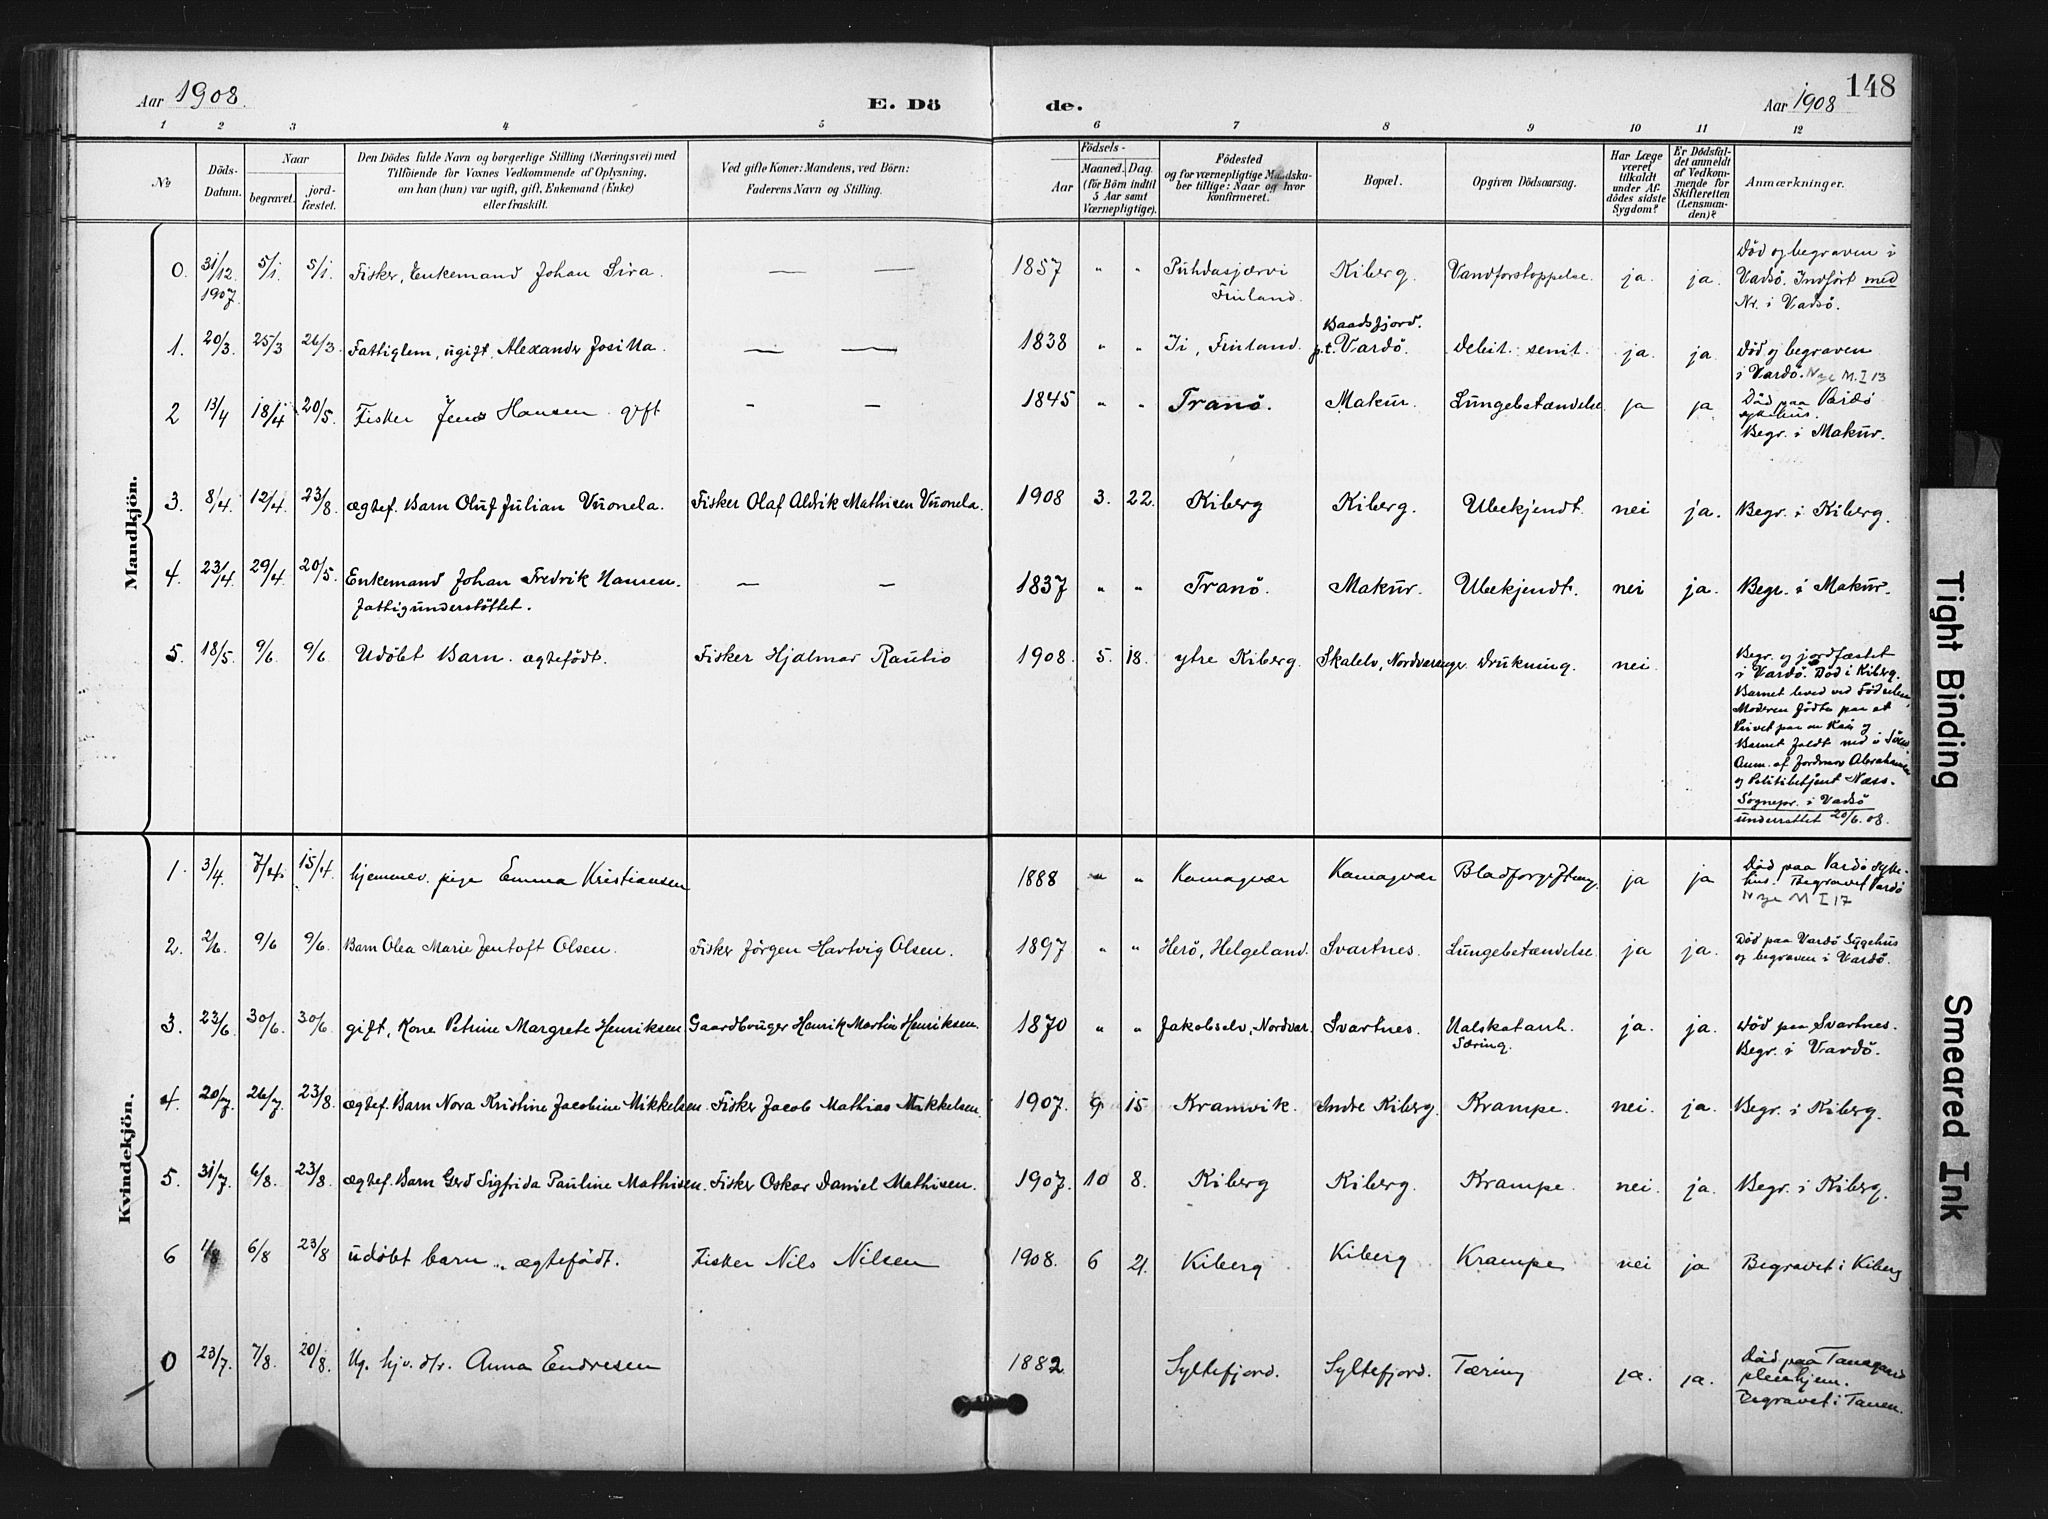 148
Aar 1908. E. Dö de. Aar 1908
1 2 3 4 5 6 7 8 9 10 11 12
No
Döds-Datum.
Naar
begravet.
jord-fæstet.
Den Dödes fulde Navn og borgerlige Stilling (Næringsvei) med
Tilföiende for Voxnes Vedkommende af Oplysning,
om han (hun) var ugift, gift, Enkemand (Enke)
eller fraskilt.
Ved gifte Koner: Mandens, ved Börn:
Faderens Navn og Stilling.
Födsels-
Aar
Maaned. Dag.
(för Börn indtil
5 Aar samt
Værnepligtige).
Födested
og for værnepligtige Mandska-
ber tillige: Naar og hvor
konfirmeret.
Bopæl.
Opgiven Dödsaarsag.
Har Læge
været
tilkaldt
under Af-
dödes sidste
Sygdom?
Er Dödsfal-
det anmeldt
af Vedkom-
mende for
Skifteretten
(Lensman-
den)?
Anmærkninger.
Mandkjön.
0. 31/12 1907. 5/1. 5/1. Fisker, Enkemand Johan Sira. — — 1857 " " Pudasjærvi Finland. Kiberg. Vandforstoppelse. ja. ja. Död og begraven i
Vadsö. Indfört med
Nr. i Vadsö.
1. 20/3. 25/3 26/3 Fattiglem, ugift, Alexander — — 1838 " " Ii, Finland. Baadsfjord.
p.t. Vardö. Debit. senit. ja. ja. Död og begraven
i Vardö. Nye M. I 13
2 13/4 18/4 20/5. Fisker Jens Hansen gft - - 1845 " " Tranö. Makur. Lungebetændelse. ja ja. Död paa Vardö
sykehus.
Begr. i Makur.
3. 8/4. 12/4. 23/8. ægtef. Barn Oluf Julian Vuonela. Fisker Olaf Aldrik Mathisen Vuonela. 1908 3. 22. Kiberg Kiberg. Ubekjendt. nei ja. Begr. i Kiberg.
4. 23/4. 29/4. 20/5. Enkemand Johan Fredrik Hansen.
fattigunderstöttet. — — 1837 " " Tranö. Makur. Ubekjendt. nei ja. Begr. i Makur.
5. 18/5. 9/6. 9/6 Udöbt Barn. ægtefödt. Fisker Hjalmar Rautio 1908. 5. 18. ytre Kiberg. Skalelv, Nordvaranger. Drukning. nei. Begr. og jordfæstet
i Vardö. Död i Kiberg.
Barnet leved ved Födselen,
Moderen födte paa et
Privet paa en Kai og
Barnet faldt ned i Söen.
Anm. af Jordmor Abrahamsen
og Politibetjent Næss.
Sognepr. i Vadsö
underrettet 20/6. 08.
Kvindekjön.
1. 3/4. 7/4. 15/4. hjemmev. pige Emma Kristiansen 1888 " " Komagvær Komagvær Blodforgiftning. ja ja Död paa Vardö Syke-
hus. Begravet Vardö
Nye M I 17
2. 2/6. 9/6 9/6. Barn Olea Marie Jentoft Olsen. Fisker Jörgen Hartvig Olsen. 1897 " " Herö, Helgeland. Svartnes. Lungebetændelse. ja ja. Död paa Vardö Sygehus
og begraven i Vardö.
3. 23/6 30/6. 30/6. gift, Kone Petrine Margrete Henriksen Gaardbruger Henrik Martin Henriksen. 1870 " " Jakobselv, Nordvar. Svartnes. ja. ja. Död paa Svartnes.
Begr. i Vardö.
4. 20/7. 26/7. 23/8. ægtef. Barn Nora Kristine Jacobine Mikkelsen. Fisker Jacob Mathias Mikkelsen. 1907. 9 15 Kramvik. Indre Kiberg. Krampe. nei. ja. Begr. i Kiberg.
5. 31/7. 6/8. 23/8. ægtef. Barn Gerd Sigfrida Pauline Mathisen. Fisker Oskar Daniel Mathisen. 1907. 10 8. Kiberg Kiberg. Krampe. nei. ja. Begr. i Kiberg.
6 1/8 6/8 23/8 udöbt barn .. ægtefödt. Fisker Nils Nilsen 1908. 6 21. Kiberg Kiberg Krampe nei ja Begravet i Kiberg
0 23/7. 7/8. 20/8. Ug. hjv. dtr. Anna Endresen 1882 Syltefjord. Syltefjord. Tæring ja. ja. Död paa Tanagaard
pleiehjem.
Begravet i Tanen.
Tight Binding
Smeared Ink